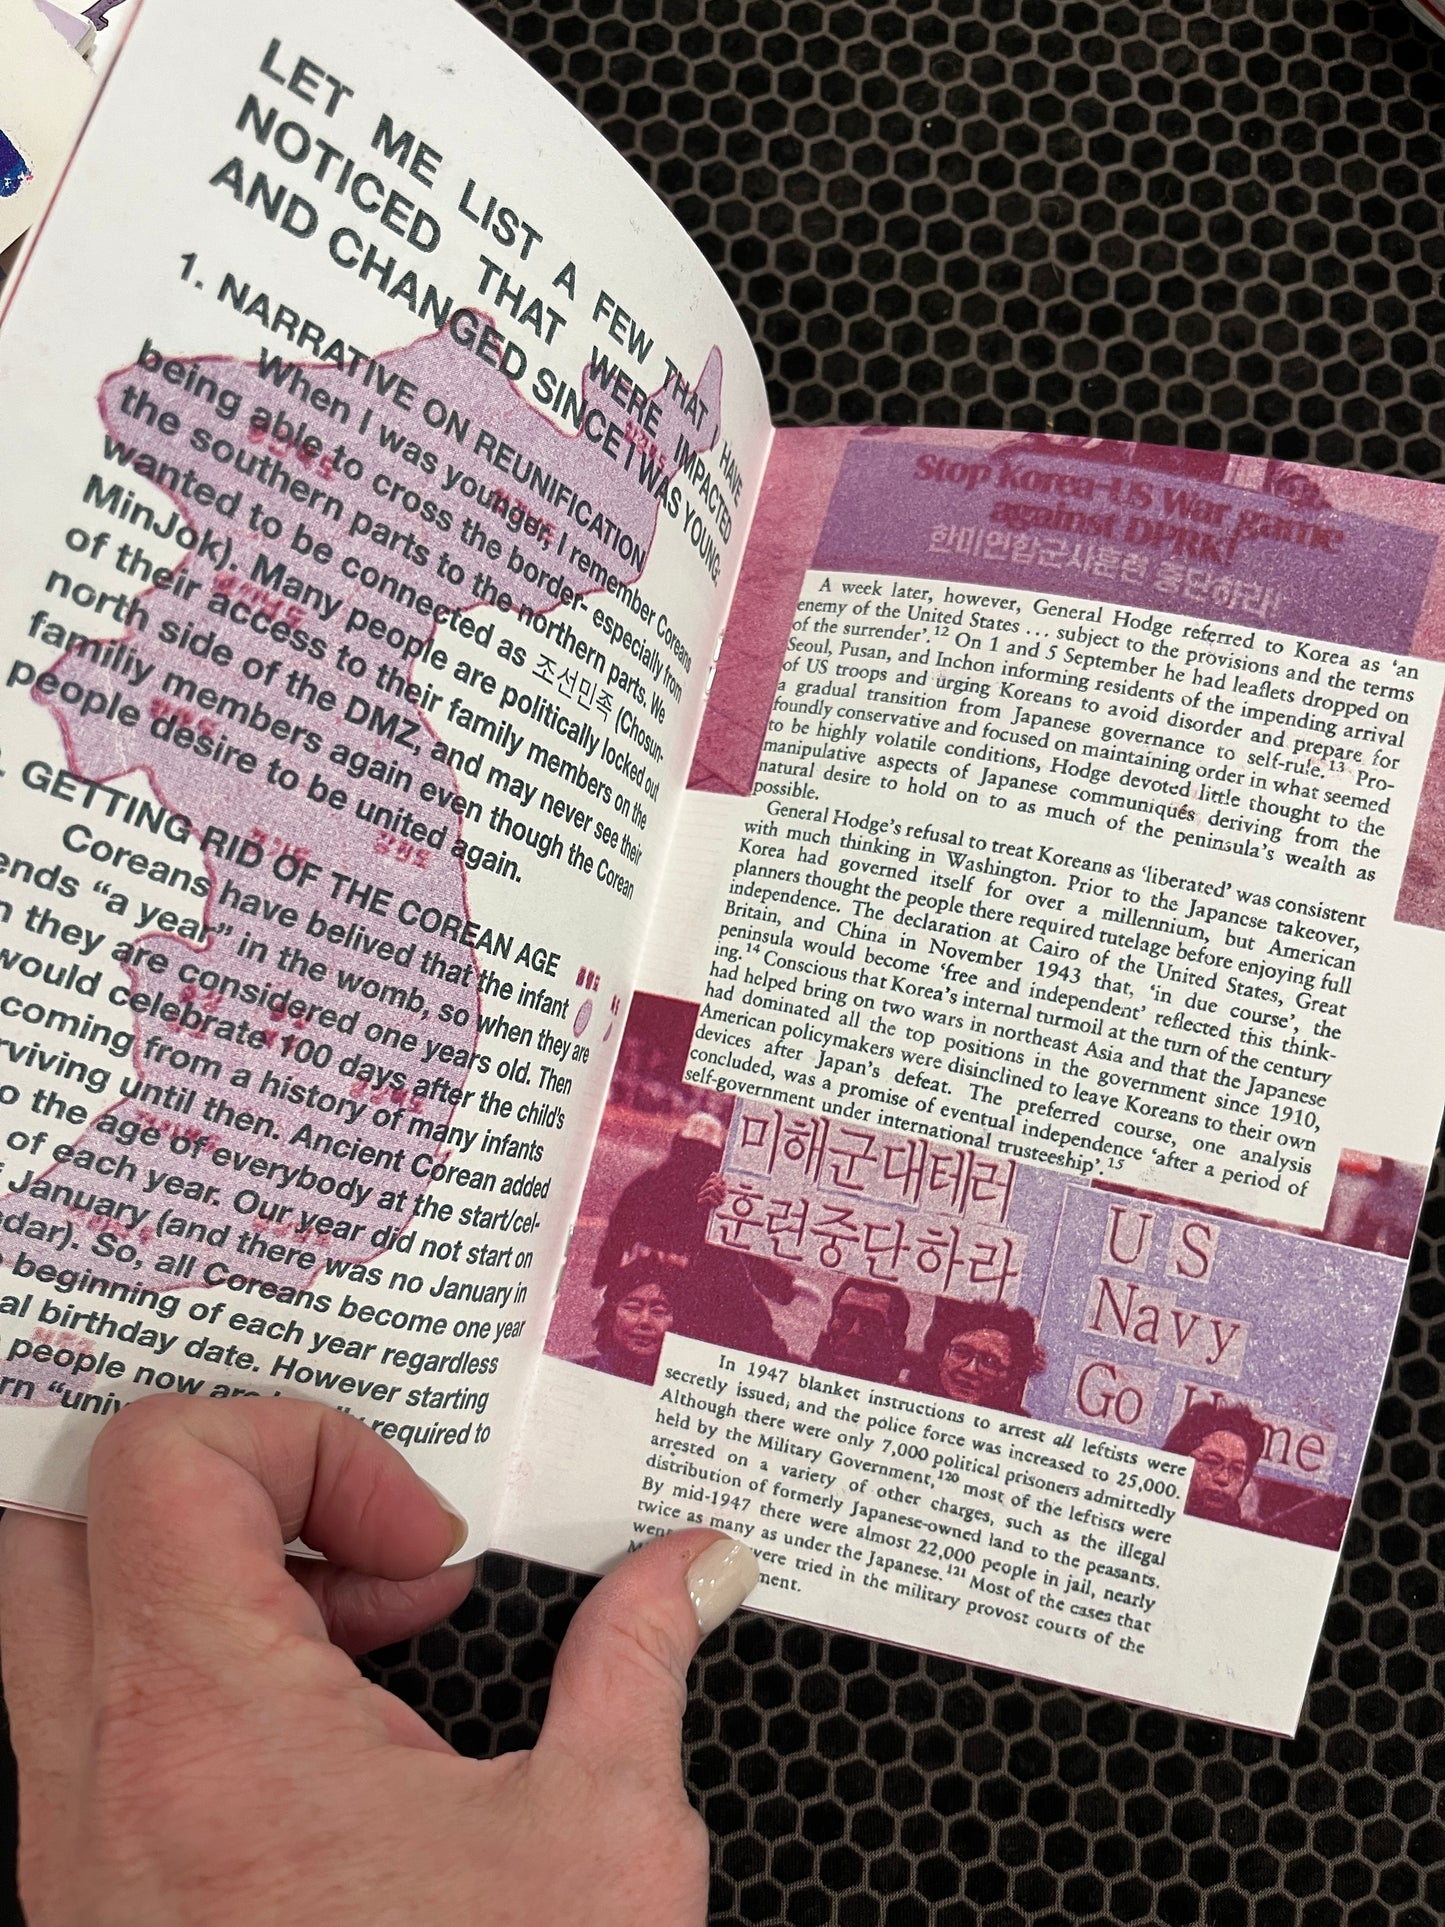 LET ME LIST A FEW THAT I HAVE
NOTICED THAT WERE IMPACTED
AND CHANGED SINCE I WAS YOUNG:
1. NARRATIVE ON REUNIFICATION
When I was younger, I remember Coreans
being able to cross the border- especially from
the southern parts to the northern parts. We
wanted to be connected as 조선민족 (Chosun-
MinJok). Many people are politically locked out
of their access to their family members on the
north side of the DMZ, and may never see their
familiy members again even though the Corean
people desire to be united again.
GETTING RID OF THE COREAN AGE
Coreans have belived that the infant
ends “a year” in the womb, so when they are
they are considered one years old. Then
would celebrate 100 days after the child's
coming from a history of many infants
rviving until then. Ancient Corean added
o the age of everybody at the start/cel-
of each year. Our year did not start on
January (and there was no January in
dar). So, all Coreans become one year
beginning of each year regardless
al birthday date. However starting
people now are required to
rn “univ
Stop Korea-US War game
against DPRK!
한미연합군사훈련 중단하라!
A week later, however, General Hodge referred to Korea as ‘an
enemy of the United States ... subject to the provisions and the terms
of the surrender’.12 On 1 and 5 September he had leaflets dropped on
Seoul, Pusan, and Inchon informing residents of the impending arrival
of US troops and urging Koreans to avoid disorder and prepare for
a gradual transition from Japanese governance to self-rule.13 Pro-
foundly conservative and focused on maintaining order in what seemed
to be highly volatile conditions, Hodge devoted little thought to the
manipulative aspects of Japanese communiqués deriving from the
natural desire to hold on to as much of the peninsula’s wealth as
possible.
General Hodge’s refusal to treat Koreans as ‘liberated’ was consistent
with much thinking in Washington. Prior to the Japanese takeover,
Korea had governed itself for over a millennium, but American
planners thought the people there required tutelage before enjoying full
independence. The declaration at Cairo of the United States, Great
Britain, and China in November 1943 that, ‘in due course’, the
peninsula would become ‘free and independent’ reflected this think-
ing.14 Conscious that Korea’s internal turmoil at the turn of the century
had helped bring on two wars in northeast Asia and that the Japanese
had dominated all the top positions in the government since 1910,
American policymakers were disinclined to leave Koreans to their own
devices after Japan’s defeat. The preferred course, one analysis
concluded, was a promise of eventual independence ‘after a period of
self-government under international trusteeship’.15
미해군대테러
훈련중단하라
US
Navy
Go Home
In 1947 blanket instructions to arrest all leftists were
secretly issued, and the police force was increased to 25,000.
Although there were only 7,000 political prisoners admittedly
held by the Military Government,120 most of the leftists were
arrested on a variety of other charges, such as the illegal
distribution of formerly Japanese-owned land to the peasants.
By mid-1947 there were almost 22,000 people in jail, nearly
twice as many as under the Japanese.121 Most of the cases that
were tried in the military provost courts of the
ment.